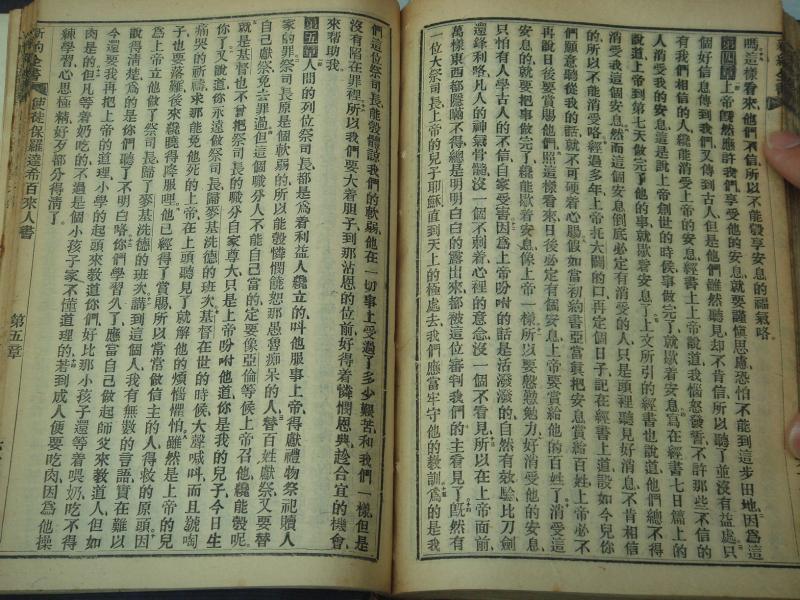 嗎、這樣看來、他們不信、所以不能彀享安息的福氣咯、
第四章 上帝旣然應許我們享受他的安息、就要謹愼思慮、恐怕不能到這步田地、因爲這
個好信息傳到我們、又傳到古人、但是他們雖然聽見、却不肯信、所以聽了並沒有益處、只
有我們相信的人、纔能消受上帝的安息、經書上上帝說道、我惱怒發誓、不許那些不信的
人消受我的安息、這是說上帝創世的時候、事做完了、就歇着安息、寫在經書七日篇上的、
說道、上帝到第七天做完了他的事、就歇着安息了、上文所引的經書也說道、他們總不得
消受我這個安息、然而這個安息、到底必定有消受的人、只是頭裡聽見好消息、不肯相信
的、所以不能消受咯、經過多年、上帝托大闢的口、再定個日子、記在經書上道、設如今兒你
們願意聽從我的話、就不可硬着心腸、假如當初約書亞當眞把安息賞給百姓、上帝必不
再說日後要賞賜他們、照這樣看來、日後必定有個安息、上帝要賞給他的百姓了、消受這
個安息的、就要把事做完了、纔能歇着安息、像上帝一樣、所以要慇懃勉力、好消受他的安息、
只怕有人學古人的不信、自家受害、因爲上帝吩咐的話是活潑潑的、自然有效驗、比刀劍
還鋒利咯、凡人的神氣骨髓、沒一個不刺着、心裡的意念、沒一個不看見、所以在上帝面前、
萬樣東西都隱瞞不得、總是明明白白的露出來、都被這位審判我們的主看見了、旣然有
一位大祭司長、上帝的兒子耶穌、直到天上的極處去、我們應當牢守他的敎訓、爲的是我
們這位祭司長、能彀體諒我們的軟弱、他在一切事上、受過了多少艱苦、和我們一樣、但是
沒有陷在罪裡、所以我們要大着胆子、到那沾恩的位前、好得着憐憫恩典、趁合宜的機會、
來幫助我、
第五章 人間的列位祭司長、都是爲着利益人纔立的、叫他服事上帝、得獻禮物祭祀、贖人
家的罪、祭司長原是個軟弱的、所以能彀憐憫饒恕那愚蠢痴呆的人、替百姓獻祭、又要替
自己獻祭、免去罪過、但這個職分、人不能自己當的、定要像亞倫等候上帝召他、纔能彀呢、
就是基督也不曾把祭司長的職分自家尊大、只是上帝吩咐他道、你是我的兒子、今日生
你了、又說道、你永遠做祭司長、歸麥基洗德的班次、基督在世的時候、大聲喊呌、而且號啕
痛哭的祈禱、求那能免他死的上帝、在上頭聽見了、就解他的煩惱懼怕、雖然是上帝的兒
子、也要落難、後來纔曉得降服哩、他已經得了賞賜、所以常常做信主的人得救的原頭、因
爲上帝立他做了祭司長、歸了麥基洗德的班次、講到這個人、我有無數的言語、實在難以
說得清楚、爲的是你們聽了不明白咯、你們學習久了、應當自己做起師父來敎道人、但如
今還要我再把上帝的道理小學的起頭來敎道你們、好比那小孩子還等着喂奶、吃不得
肉是的、但凡等着奶吃的、不過是個小孩子家、不懂道理的、若到成人、便要吃肉、因爲他操
練學習、心思極精、好歹都分得清了、
新約全書 使徒保羅達希百來人書 第五章